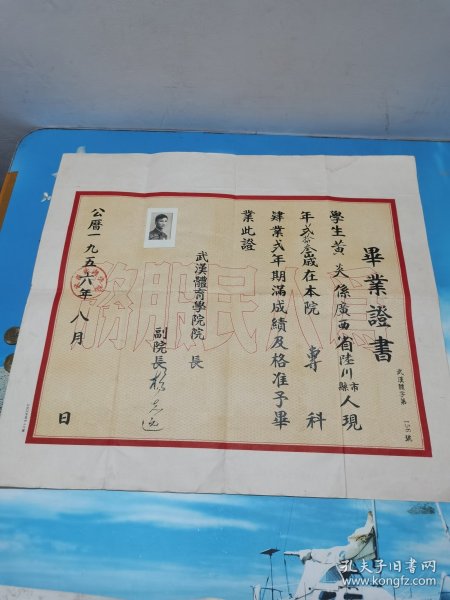 畢業證書
武漢體字第 156 號
學生黃炎係廣西省陸川市縣人現
年弍拾叁歲在本院專科
肄業弍年期滿成績及格准予畢
業此證
武漢體育學院院長
副院長
公曆一九五六年八月 日
為人民服務
孔夫子旧书网
www.kongfz.com